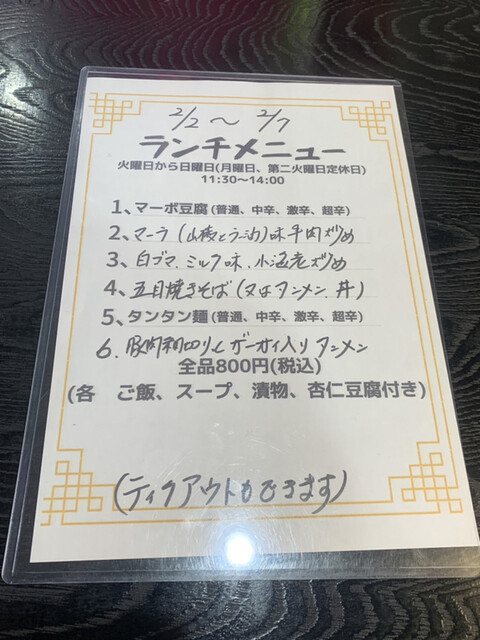 2/2～2/7
ランチメニュー
火曜日から日曜日(月曜日、第二火曜日定休日)
11:30～14:00
1、マーボ豆腐(普通、中辛、激辛、超辛)
2、マーラ(山椒とラー油)味牛肉炒め
3、白ゴマ、ミルク味、小海老炒め
4、五目焼きそば(又はタンメン、丼)
5、タンタン麺(普通、中辛、激辛、超辛)
6、豚肉細切りとザーサイ入りタンメン
全品800円(税込)
(各　ご飯、スープ、漬物、杏仁豆腐付き)
(ティクアウトもできます)